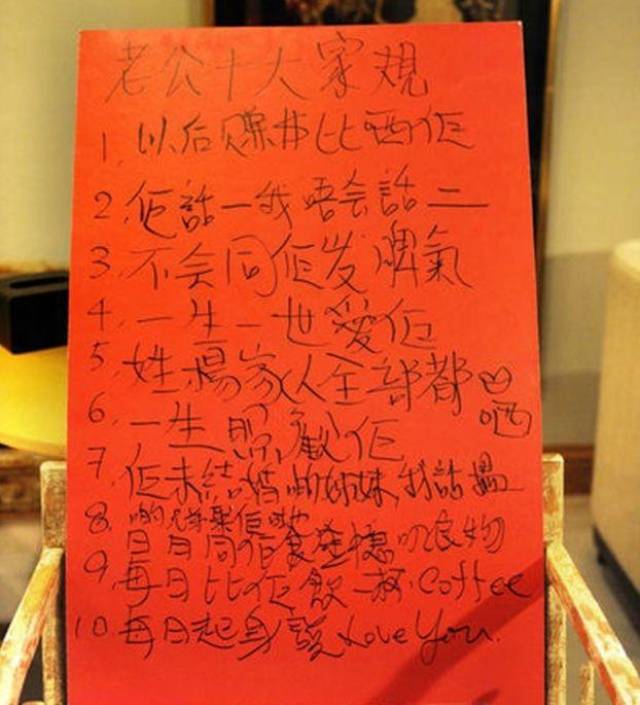 老公十大家規
1. 以后赚井比哂佢
2. 佢話一我唔会話二
3. 不会同佢发脾氣
4. 一生一世愛佢
5. 姓楊家人全部都哂
6. 一生照佢
7. 佢未結婚啲姊妹,我話搵
8. 啲佢哋
日日同佢食
9. 每日比佢飲一杯 Coffee
10 每日起身說 Love You.